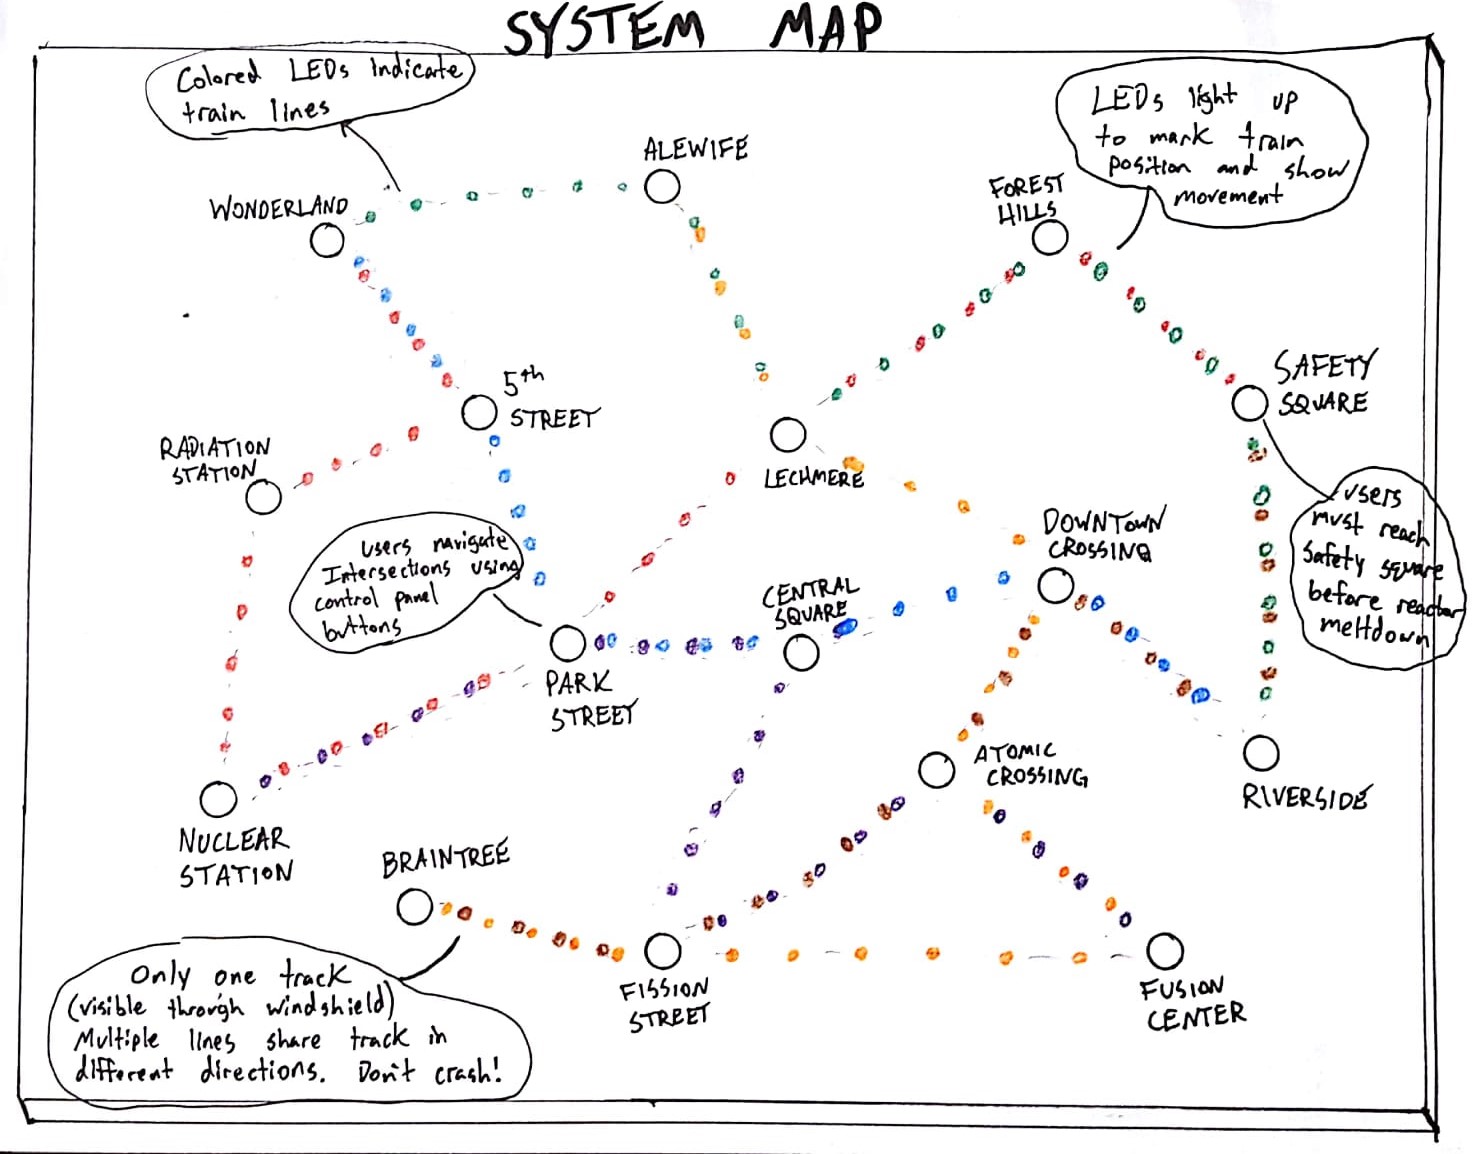 SYSTEM MAP
Colored LEDs Indicate
train lines
LEDs light up
to mark train
position and show
movement
ALEWIFE
FOREST
HILLS
WONDERLAND
SAFETY
SQUARE
5th
STREET
RADIATION
STATION
LECHMERE
Users must reach
Safety square
before reactor
meltdown
DOWNTOWN
CROSSING
Users navigate
Intersections using
control panel
buttons
CENTRAL
SQUARE
PARK
STREET
ATOMIC
CROSSING
RIVERSIDE
NUCLEAR
STATION
BRAINTREE
Only one track
(visible through windshield)
Multiple lines share track in
different directions. Don't crash!
FISSION
STREET
FUSION
CENTER